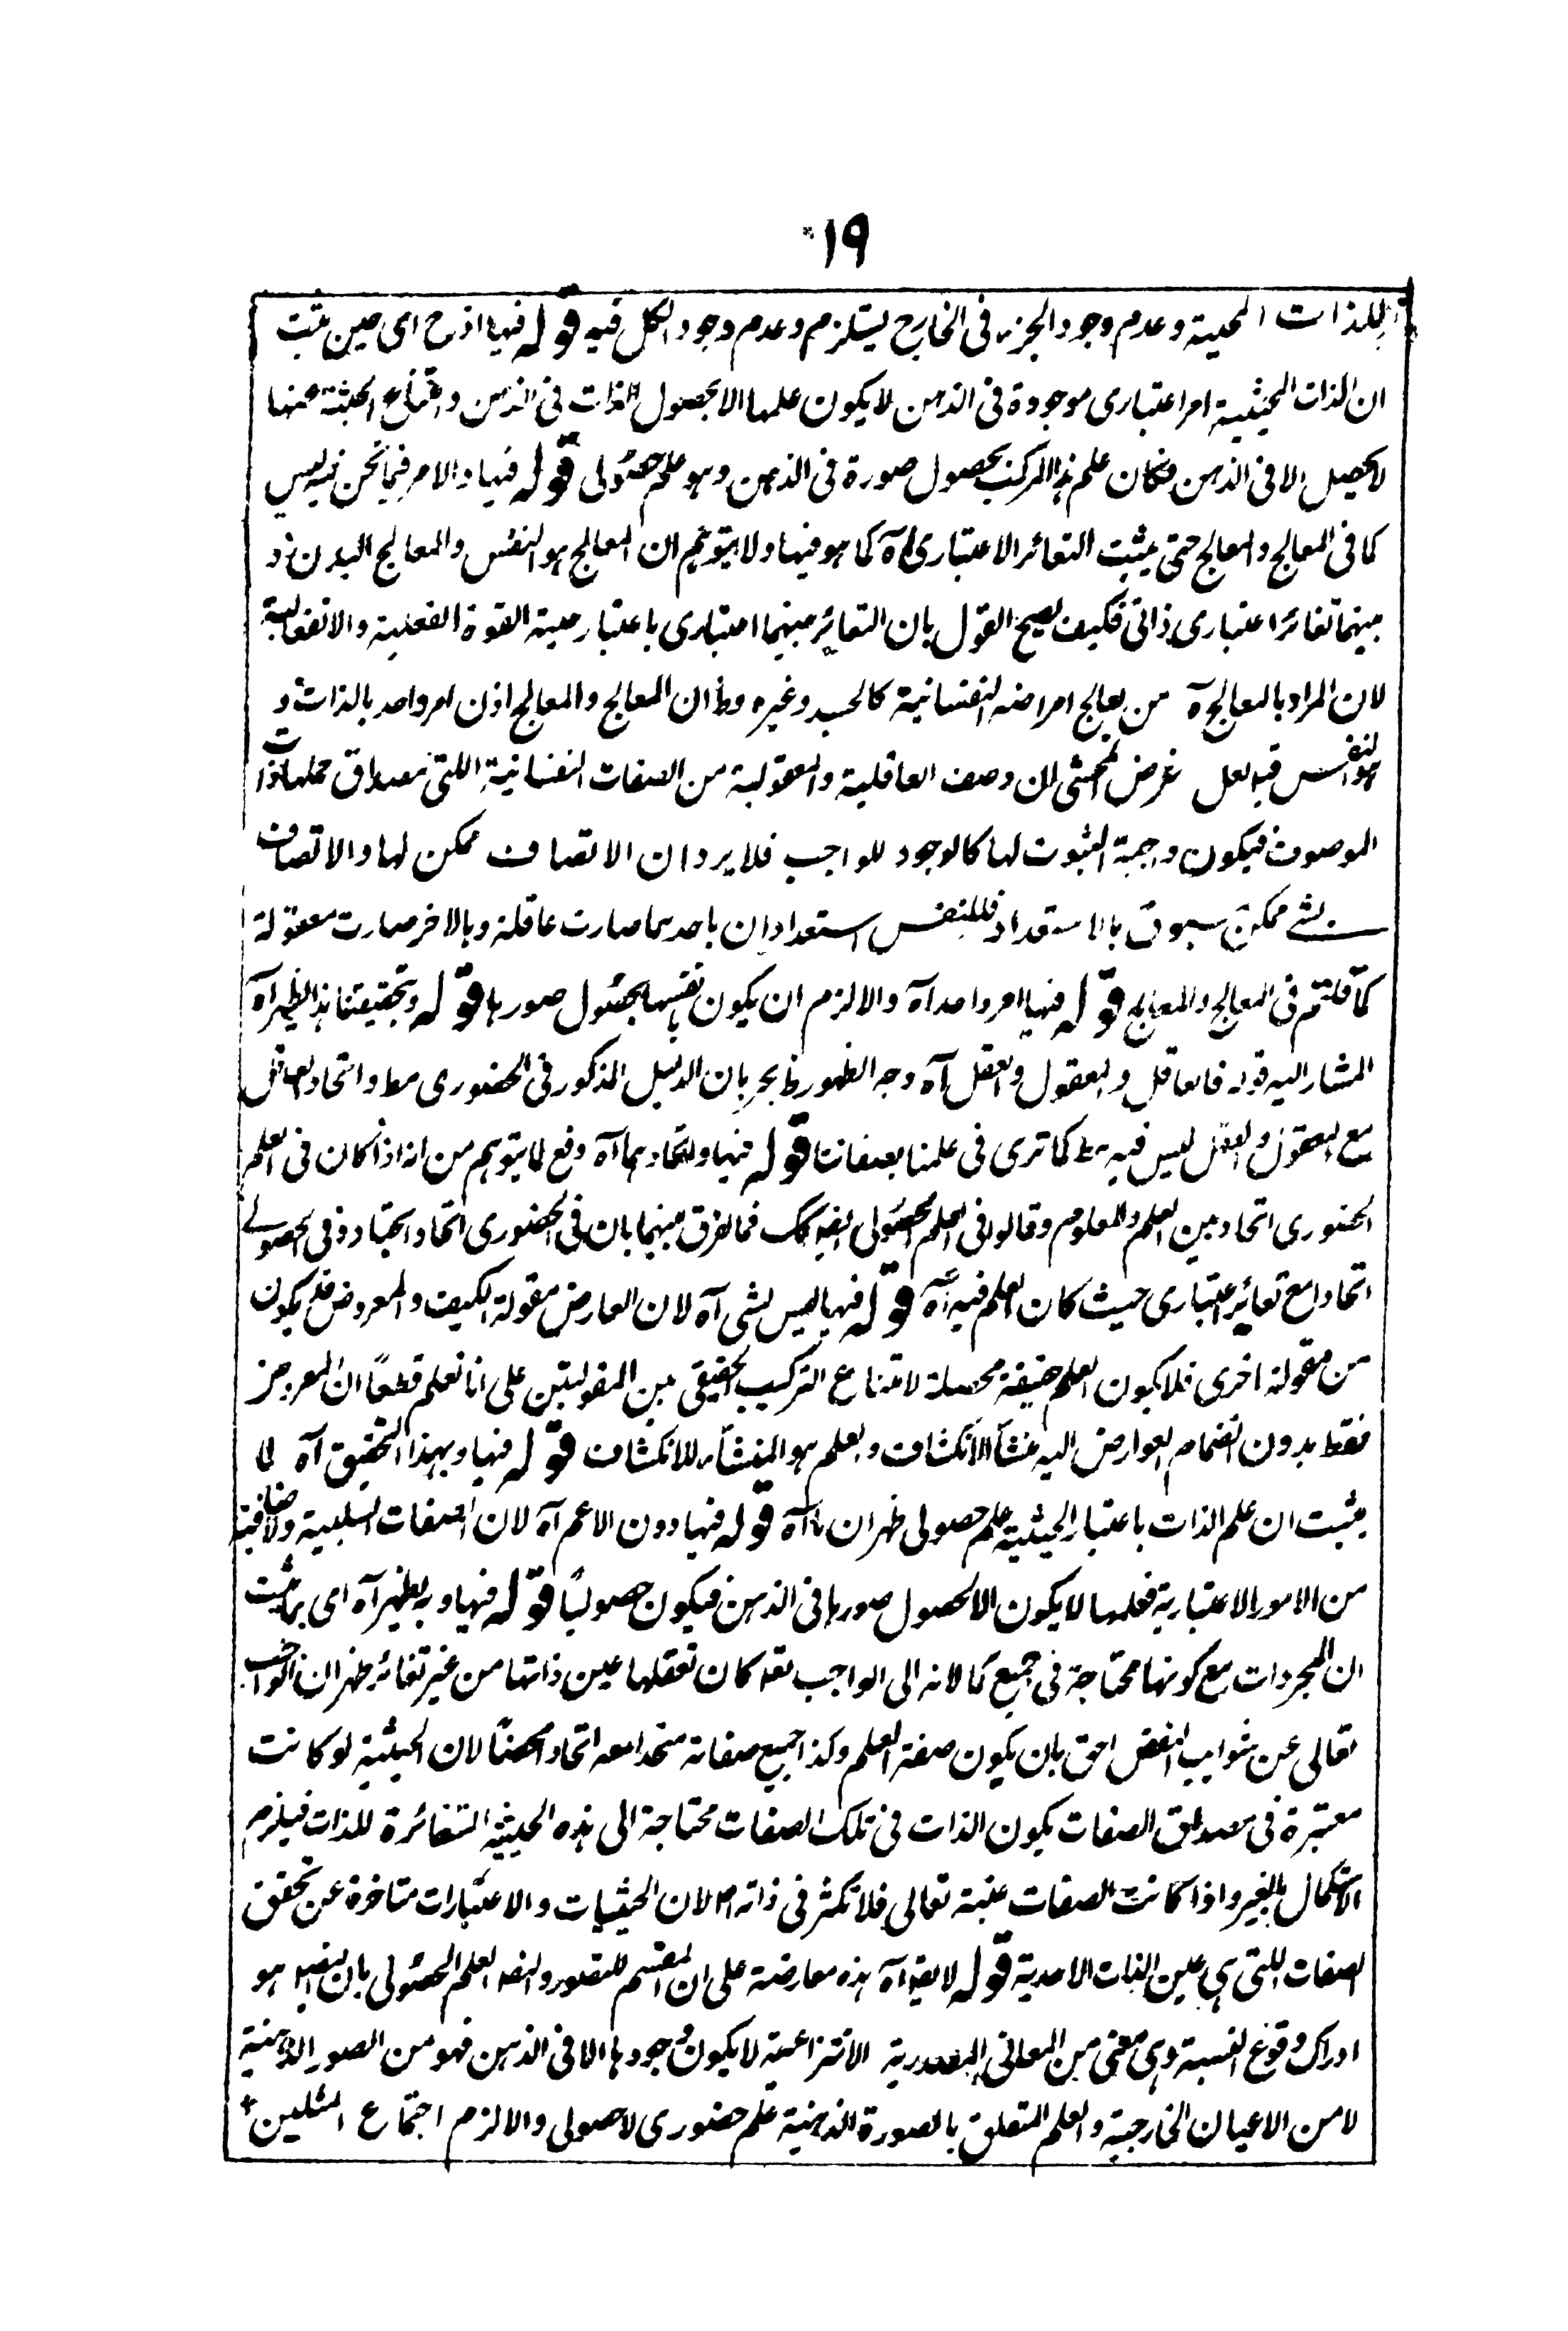 ١٩
للذات المحيثة وعدم وجود الجزء فى الخارج يستلزم وعدم وجود الكل فيه قوله فيها اذ ح اى حين يثبت
ان الذات المحيثية امر اعتبارى موجودة فى الذهن لا يكون علمها الا بحصول الذات فى الذهن وانتزاع الحيثية عنها
لا يحصل الا فى الذهن فكان علم هذا المركب بحصول صورة فى الذهن وهو علم حصولى قوله فيها والامر فيما نحن فيه ليس
كما فى المعالج والمعالج حتى يثبت التغائر الاعتبارى آه كما هو فيها ولا يتوهم ان المعالج هو النفس والمعالج البدن
بينهما تغائر اعتبارى ذاتى فكيف يصح القول بان التغائر بينهما اعتبارى باعتبار حيثية القوة الفعلية والانفعالية
لان المراد بالمعالج آه من يعالج امراضه النفسانية كالحسد وغيره وظ ان المعالج والمعالج اذن امر واحد بالذات و
هو النفس فيه لعل غرض المحشى ان وصف العاقلية والمعقولية من الصفات النفسانية اللتى مصداق حملها ذات
الموصوف فيكون واجبة الثبوت لها كالوجود للواجب فلا يرد ان الاتصاف ممكن لها والاتصاف
بشئ ممكن مسبوق بالاستعداد فللنفس استعدادان باحدهما صارت عاقلة وبالاخر صارت معقولة
كما قلتم فى المعالج والمعالج قوله فيها امر واحد آه والا لزم ان يكون نفسها بحصول صورها قوله وبتحقيقنا هذا يظهر آه
المشار اليه قوله فالعاقل والمعقول والعقل آه وجه الظهور ظ بجريان الدليل المذكور فى الحضورى مط واتحاد العاقل
مع المعقول والعقل ليس فيه مط كما ترى فى علمنا بصفاتنا قوله فيها واتحادهما آه دفع لما يتوهم من انه اذا كان فى العلم
الحضورى اتحاد بين العلم والمعلوم وقالوا فى العلم الحصولى ايضا كك فما الفرق بينهما بان فى الحضورى اتحاد بحتا وفى الحصولى
اتحادا مع تغائر اعتبارى حيث كان العلم فيه آه قوله فيها ليس بشئ آه لان العارض مقولة الكيف والمعروض قد يكون
من مقولة اخرى فلا يكون العلم حقيقة محصلة لامتناع التركيب الحقيقى بين المقولتين على انا نعلم قطعًا ان المعروض
فقط بدون انضمام العوارض اليه منشأ الانكشاف والعلم هو المنشأ للانكشاف قوله فيها وبهذا التحقيق آه لما
يثبت ان علم الذات باعتبار الحيثية علم حصولى ظهر ان ما آه قوله فيها دون الاعم آه لان الصفات السلبية والاضافية
من الامور الاعتبارية فعلمها لا يكون الا بحصول صورها فى الذهن فيكون حصوليًا قوله فيها وبه يظهر آه اى بما يثبت
ان المجردات مع كونها محتاجة فى جميع كمالاته الى الواجب تعه كان تعقلها عين ذاتها من غير تغائر ظهر ان الواجب
تعالى عن شوايب النقص احق بان يكون صفة العلم وكذا جميع صفاته متحدا معه اتحادا محضًا لان الحيثية لو كانت
معتبرة فى مصداق الصفات يكون الذات فى تلك الصفات محتاجة الى هذه الحيثية المتغائرة للذات فيلزم
الاستكمال بالغير واذا كانت الصفات عينه تعالى فلا تكثر فى ذاته اه لان الحيثيات والاعتبارات متاخرة عن تحقق
الصفات اللتى هى عين الذات الاحدية قوله لا يقه آه هذه معارضة على ان المقسم للتصور والتصديق العلم الحصولى بان التصديق هو
ادراك وقوع النسبة وهى معنى من المعانى المصدرية الانتزاعية لا يكون وجودها الا فى الذهن فهو من الصور الذهنية
لا من الاعيان الخارجية والعلم المتعلق بالصورة الذهنية علم حضورى لا حصولى والا لزم اجتماع المثلين